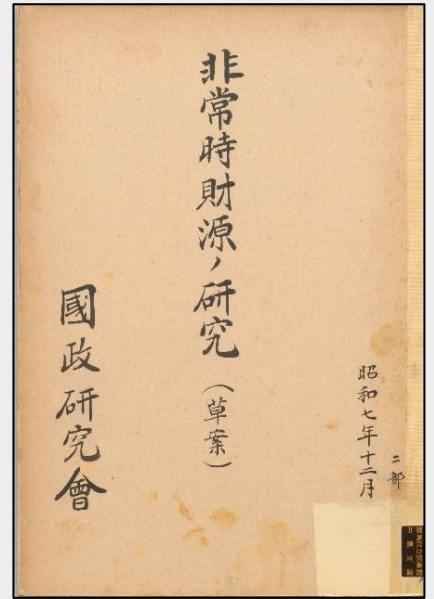 昭和七年十二月
二部
非常時財源ノ研究（草案）
國政研究會